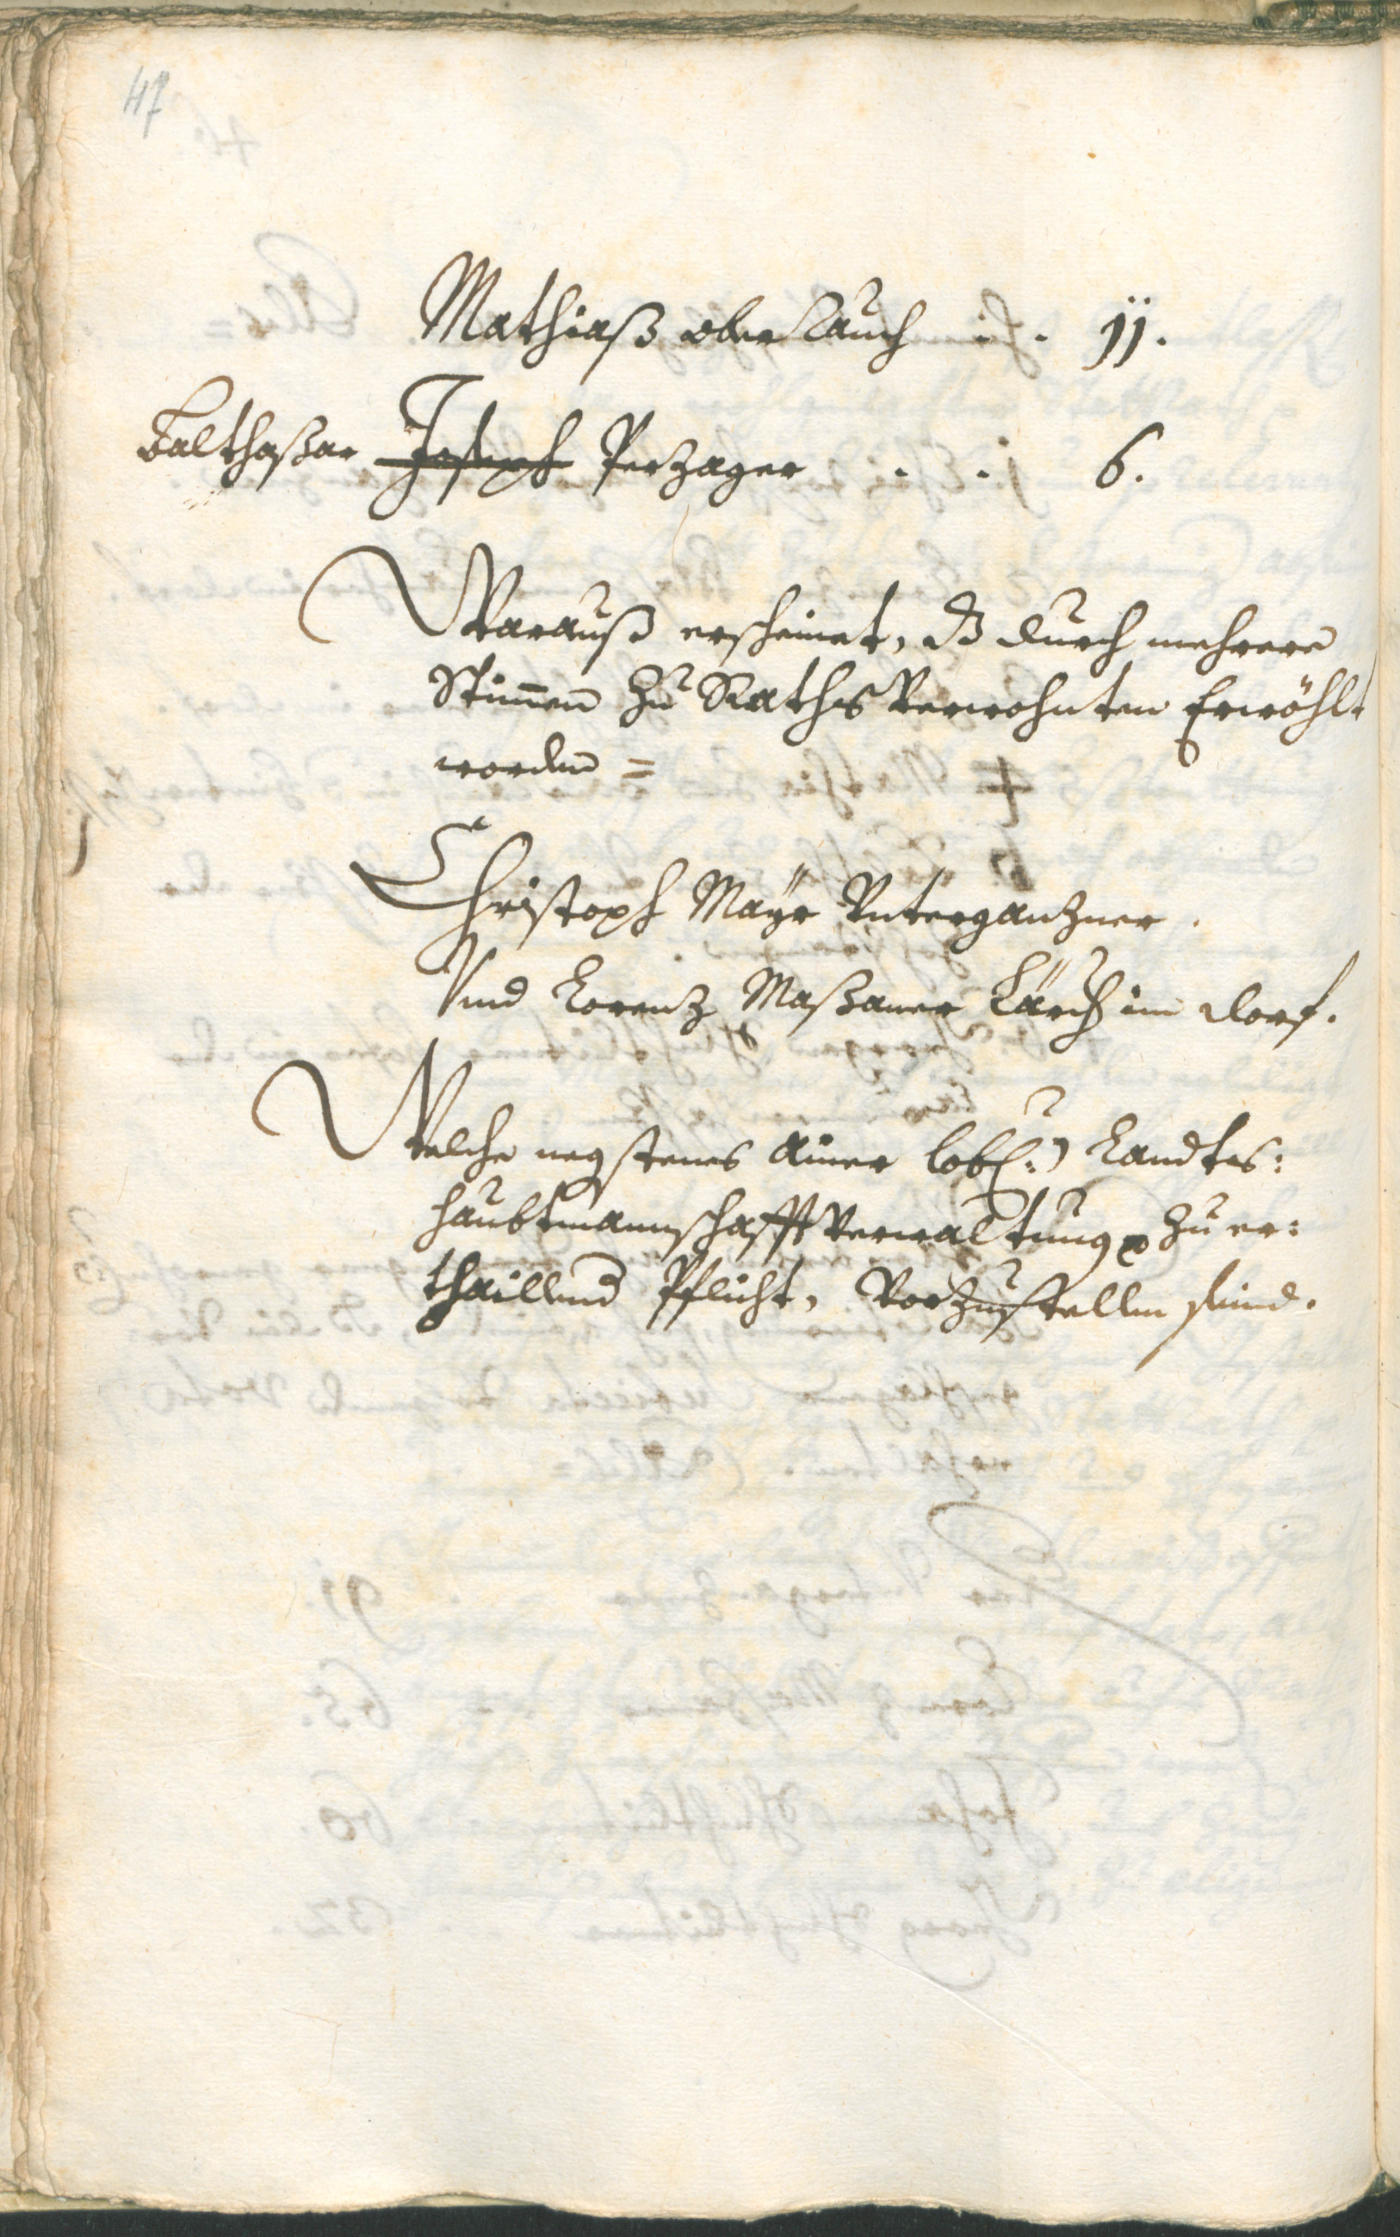 47
Mathiaß oberrauch . . 11.
Balthaßar Joseph Perzager . . 6.
Warauß erscheinet, dß durch mehrere
Stimen zu Raths Verwohnten Erwöhlt
worden =
Christoph Mayr Unterganzner.
Und Lorenz Maßaner Lärch im dorf.
Welche negstens ainer lobl: Landts:
haubtmannschafft Verwaltung zu er:
thaillend Pflicht, Vorzustellen seind.